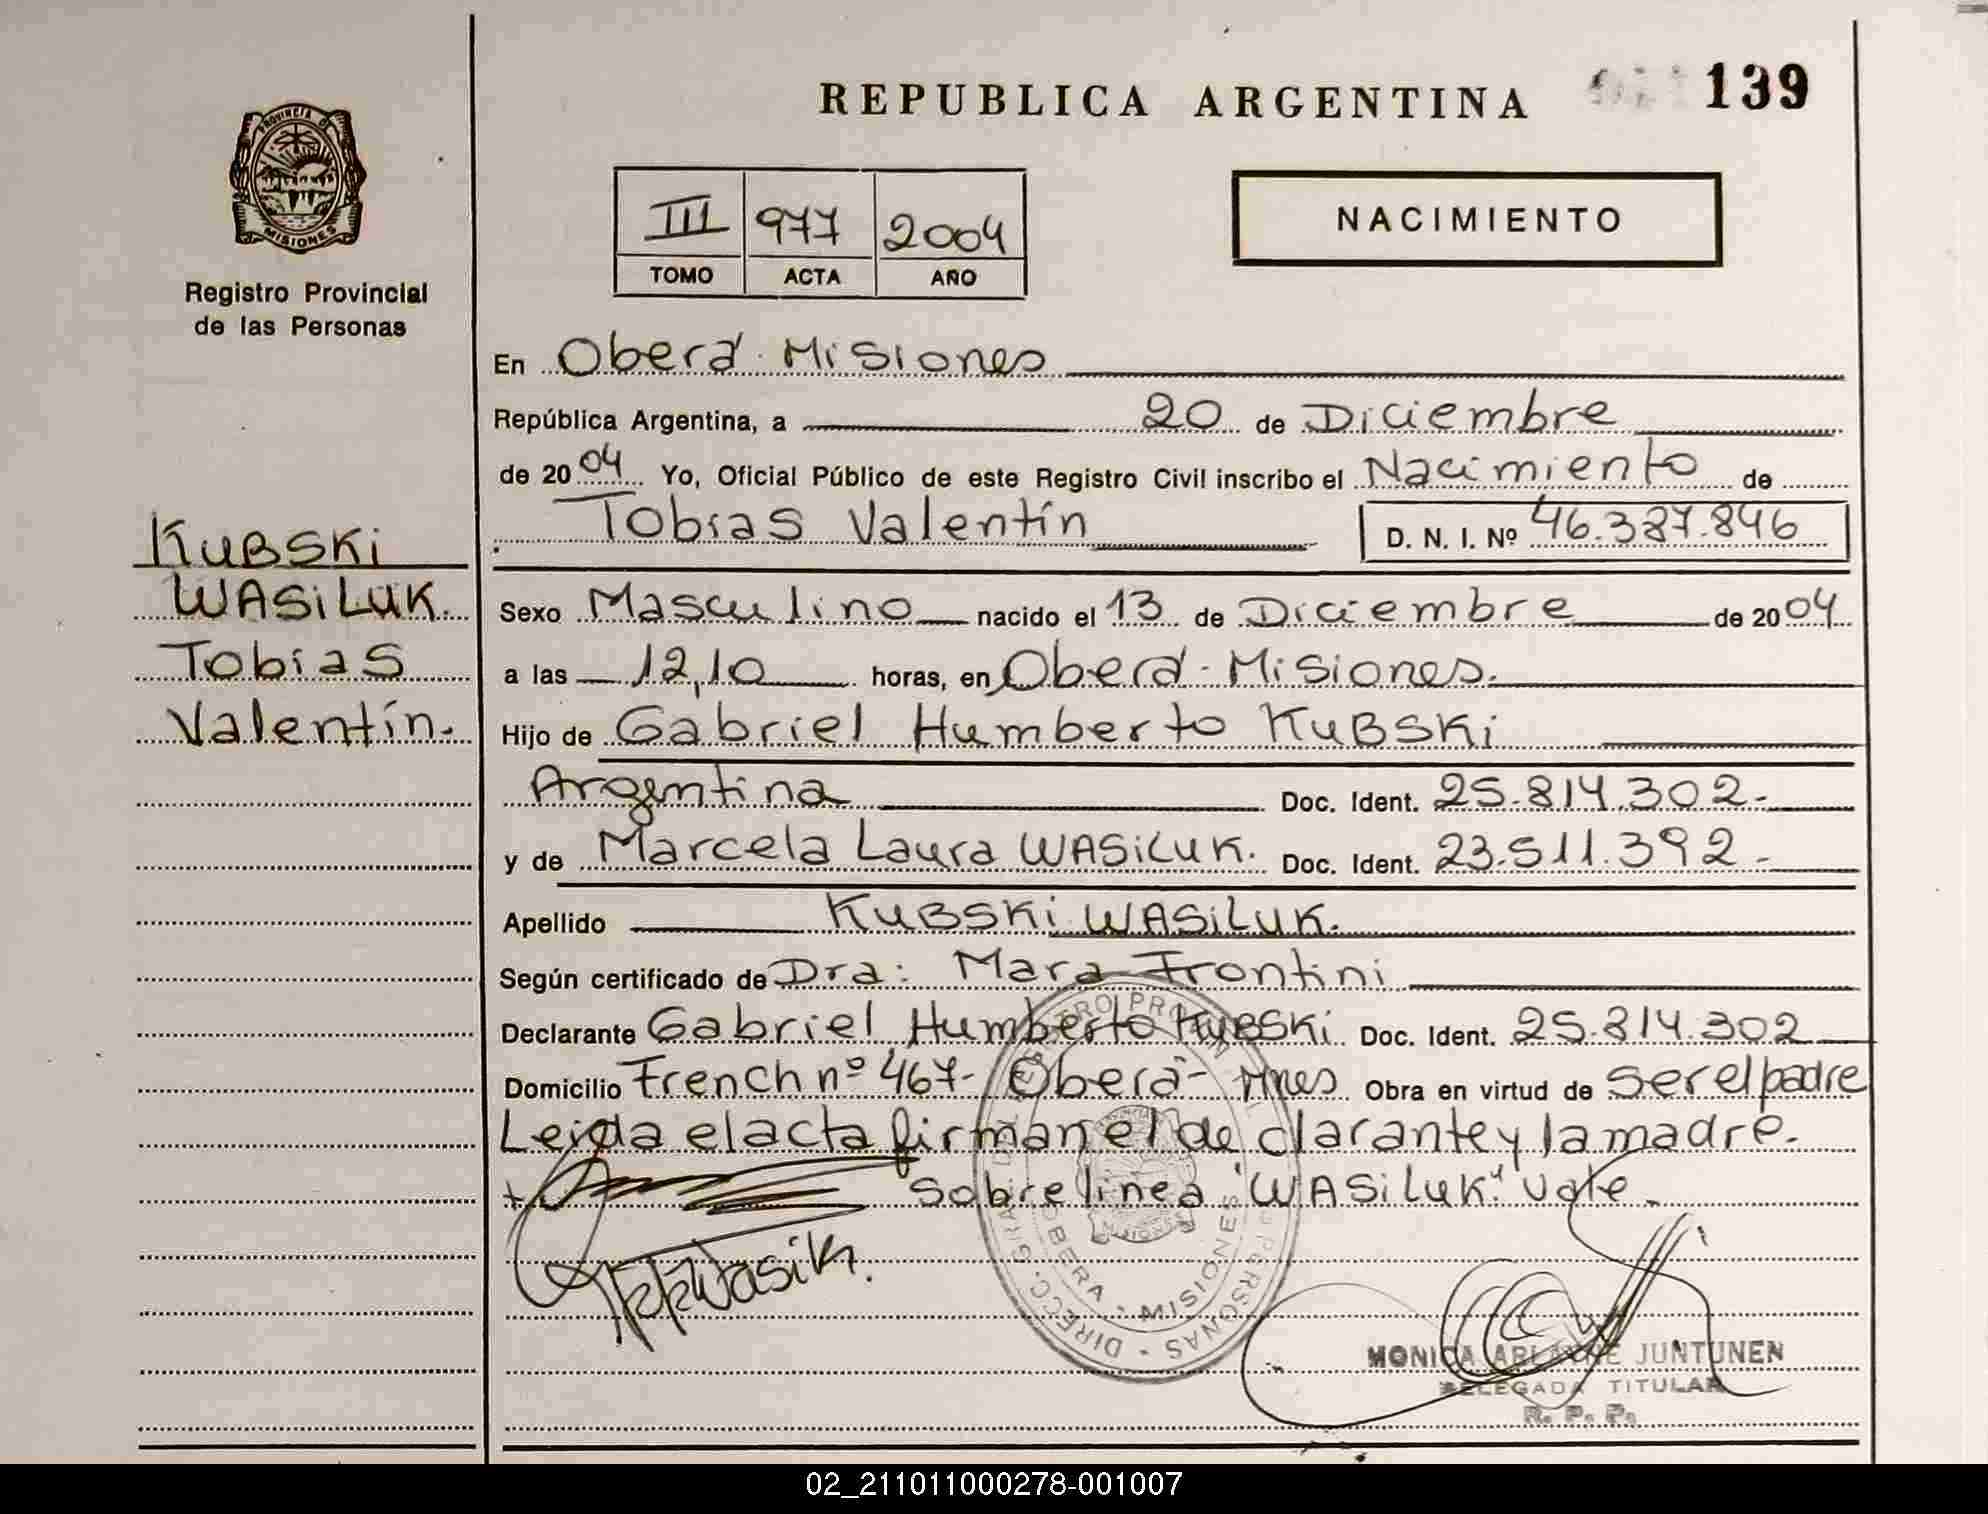 REPUBLICA ARGENTINA
139
PROVINCIA DE
MISIONES
Registro Provincial
de las Personas
III 977 2004
TOMO ACTA AÑO
NACIMIENTO
En Oberá - Misiones
República Argentina, a 20 de Diciembre
de 2004 Yo, Oficial Público de este Registro Civil inscribo el Nacimiento de
Tobias Valentín D. N. I. Nº 46.387.846
KUBSKi
WASiLUK.
Tobias
Valentín.
Sexo Masculino nacido el 13 de Diciembre de 2004
a las 12,10 horas, en Oberá - Misiones.
Hijo de Gabriel Humberto KUBSKi
Argentina Doc. Ident. 25.814.302-
y de Marcela Laura WASiLUK. Doc. Ident. 23.511.392-
Apellido KUBSKi WASiLUK.
Según certificado de Dra: Mara Frontini
Declarante Gabriel Humberto KUBSKi Doc. Ident. 25.814.302
Domicilio French nº 467- Oberá- Mnes Obra en virtud de ser el padre
Leida el acta firman el declarante y la madre.
Sobre linea "WASiLUK" Vale.
OBERA - MISIONES
MONICA ARLAYNE JUNTUNEN
DELEGADA TITULAR
R. P. P.
02_211011000278-001007